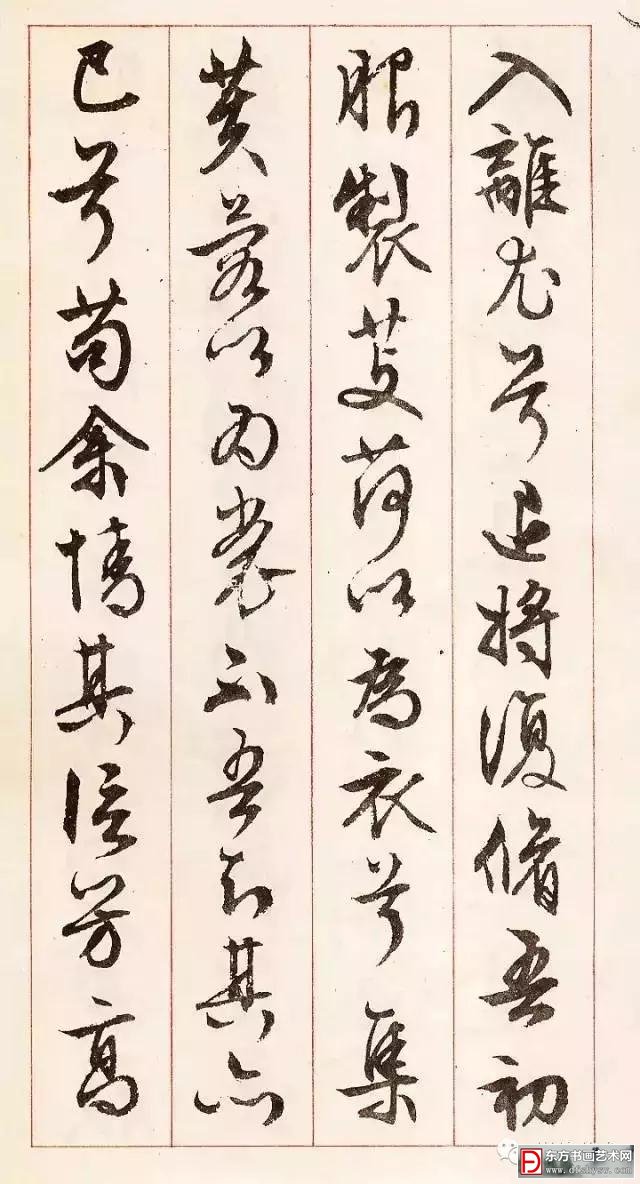 入離尤兮退將復脩吾初
服製芰荷以為衣兮集
芙蓉以為裳不吾知其亦
已兮苟余情其信芳高
东方书画艺术网